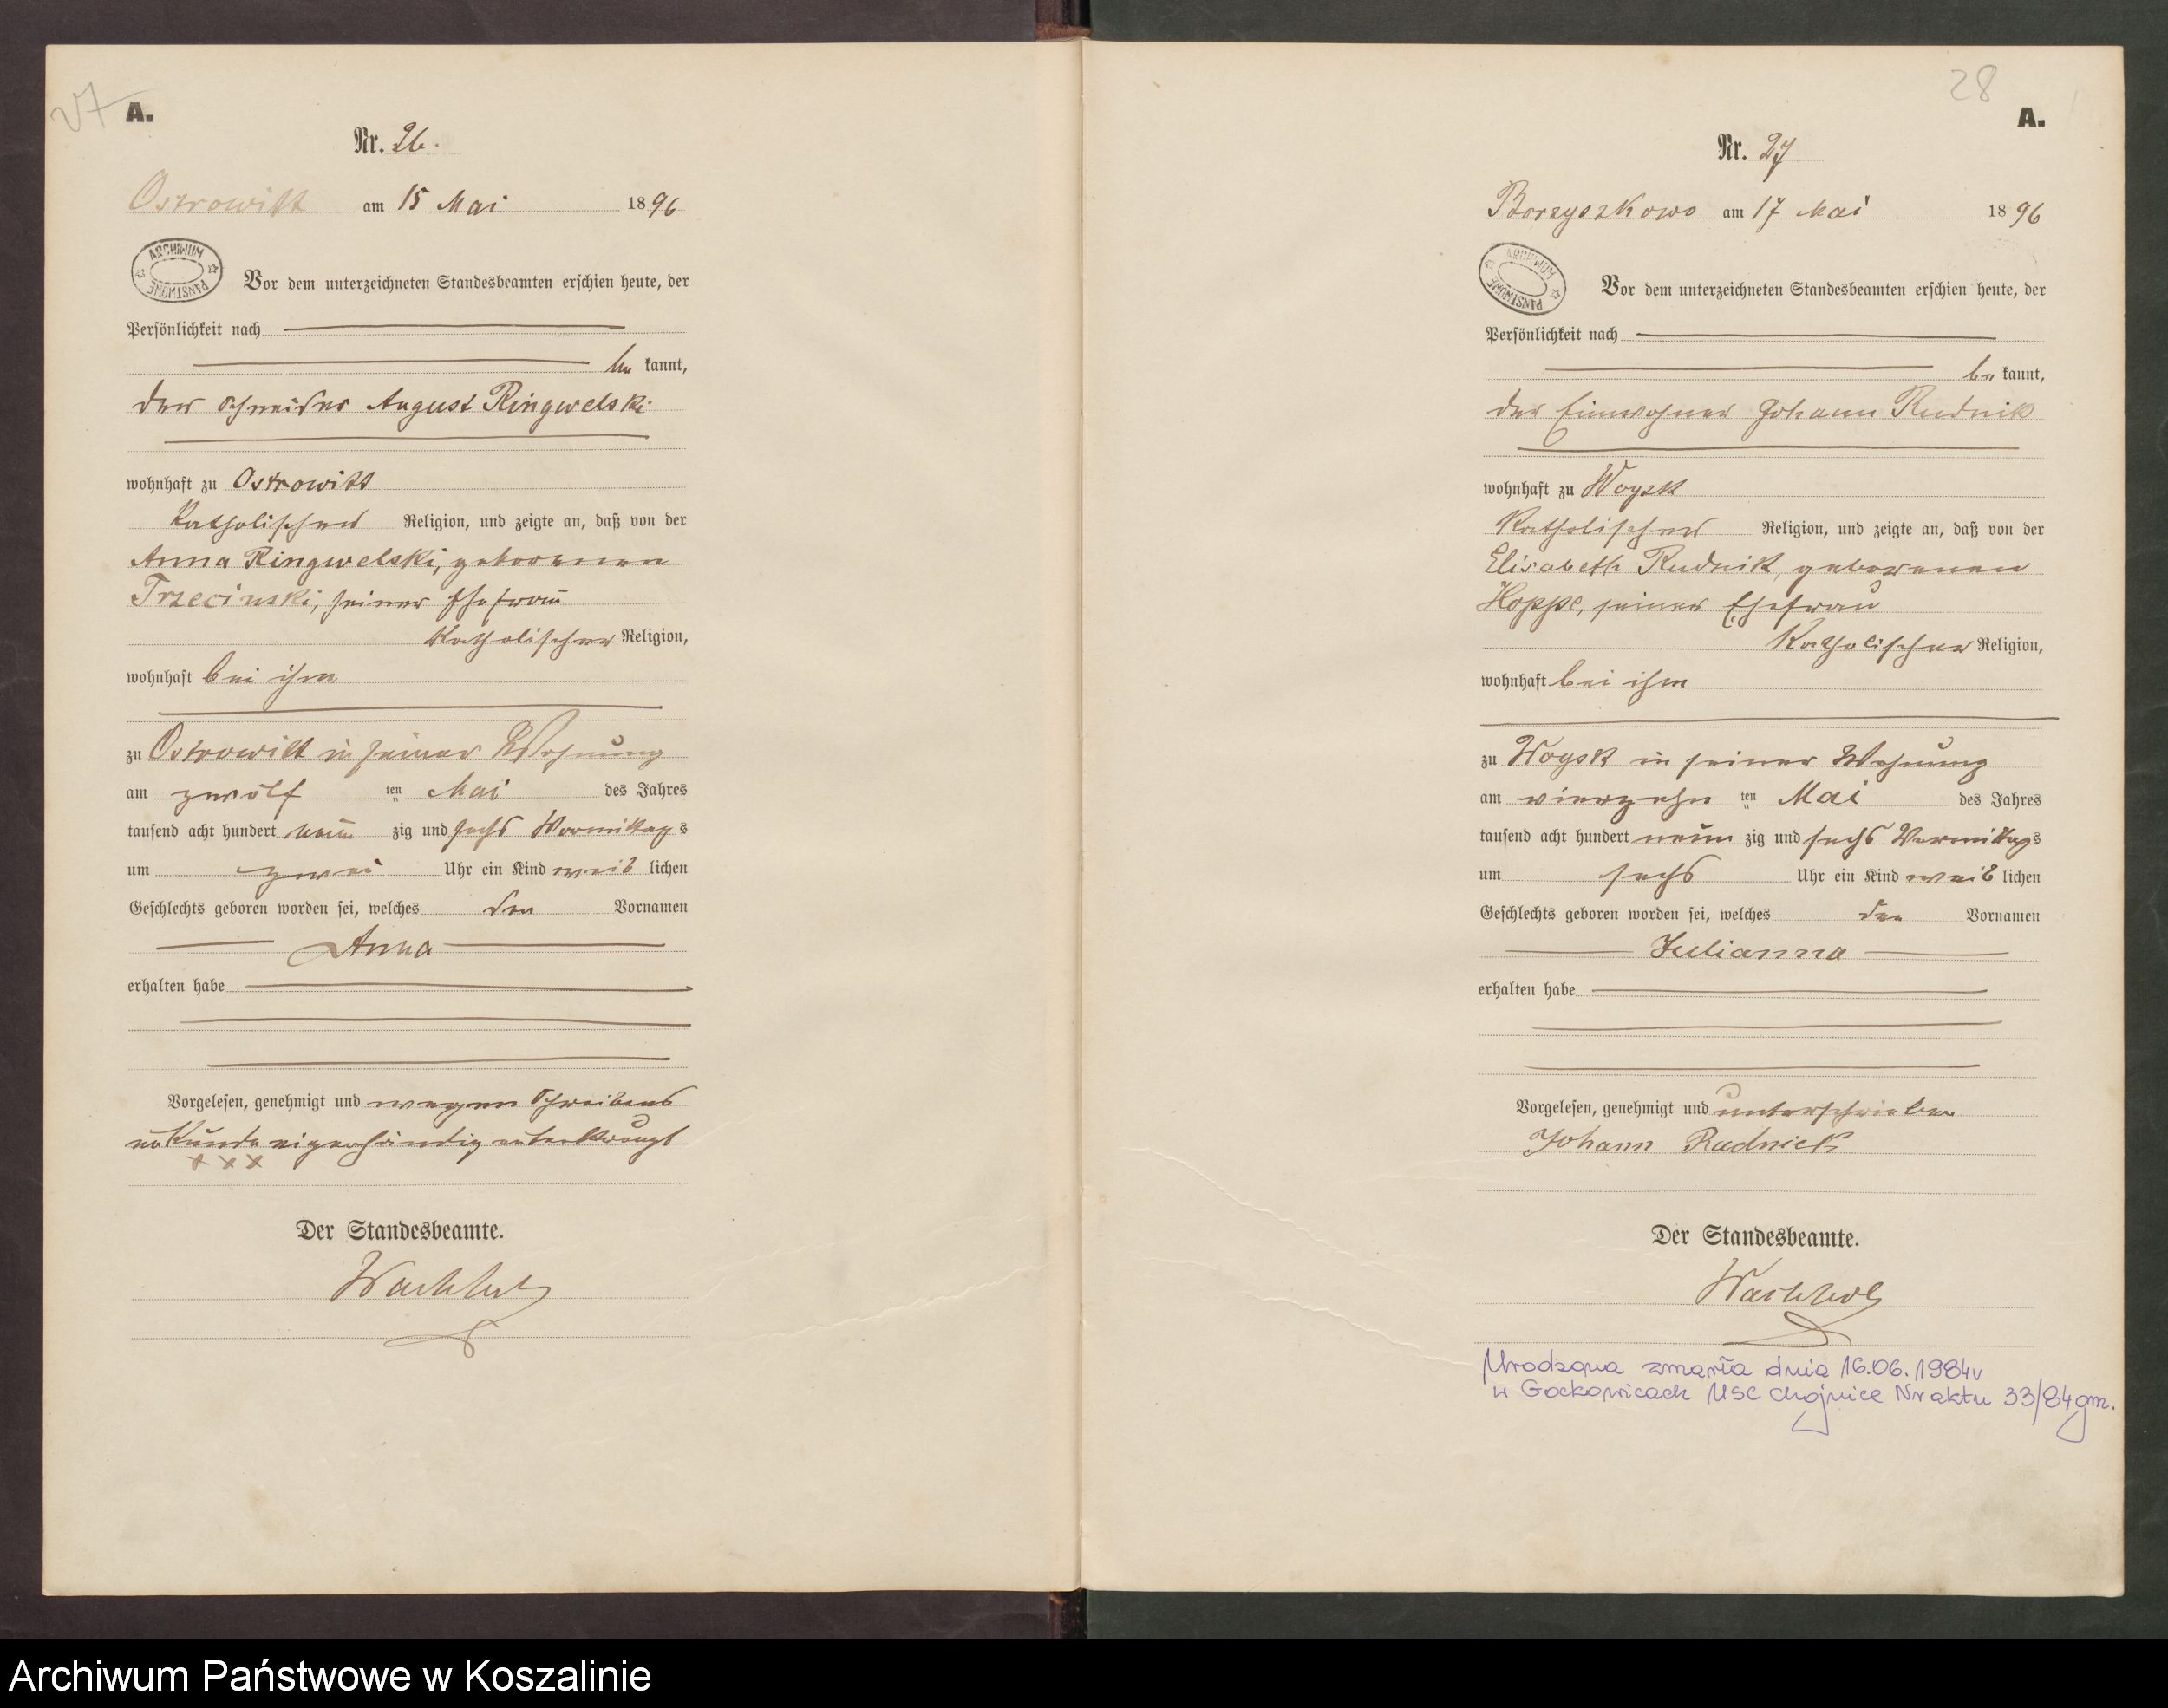 27
A.
Nr. 26.
Ostrowitt am 15 Mai 1896
ARCHIWUM PAŃSTWOWE
Vor dem unterzeichneten Standesbeamten erschien heute, der
Persönlichkeit nach
be kannt,
der Schneider August Ringwelski
wohnhaft zu Ostrowitt
katholischer Religion, und zeigte an, daß von der
Anna Ringwelski, geborenen
Trzecinski, seiner Ehefrau
katholischer Religion,
wohnhaft bei ihm
zu Ostrowitt in seiner Wohnung
am zwölf ten Mai des Jahres
tausend acht hundert neun zig und sechs Vormittags
um zwei Uhr ein Kind weib lichen
Geschlechts geboren worden sei, welches den Vornamen
Anna
erhalten habe
Vorgelesen, genehmigt und wegen Schreibens
unkunde eigenhändig unterkreuzt
x x x
Der Standesbeamte.
28
A.
Nr. 27
Borzyszkowo am 17 Mai 1896
ARCHIWUM PAŃSTWOWE
Vor dem unterzeichneten Standesbeamten erschien heute, der
Persönlichkeit nach
be kannt,
der Einwohner Johann Rudnik
wohnhaft zu Woysk
katholischer Religion, und zeigte an, daß von der
Elisabeth Rudnik, geborenen
Hoppe, seiner Ehefrau
katholischer Religion,
wohnhaft bei ihm
zu Woysk in seiner Wohnung
am vierzehn ten Mai des Jahres
tausend acht hundert neun zig und sechs Vormittags
um sechs Uhr ein Kind weib lichen
Geschlechts geboren worden sei, welches den Vornamen
Julianna
erhalten habe
Vorgelesen, genehmigt und unterschrieben
Johann Rudnick
Der Standesbeamte.
Urodzona zmarła dnia 16.06.1984r
w Gockowicach USC Chojnice Nr aktu 33/84 gm.
Archiwum Państwowe w Koszalinie